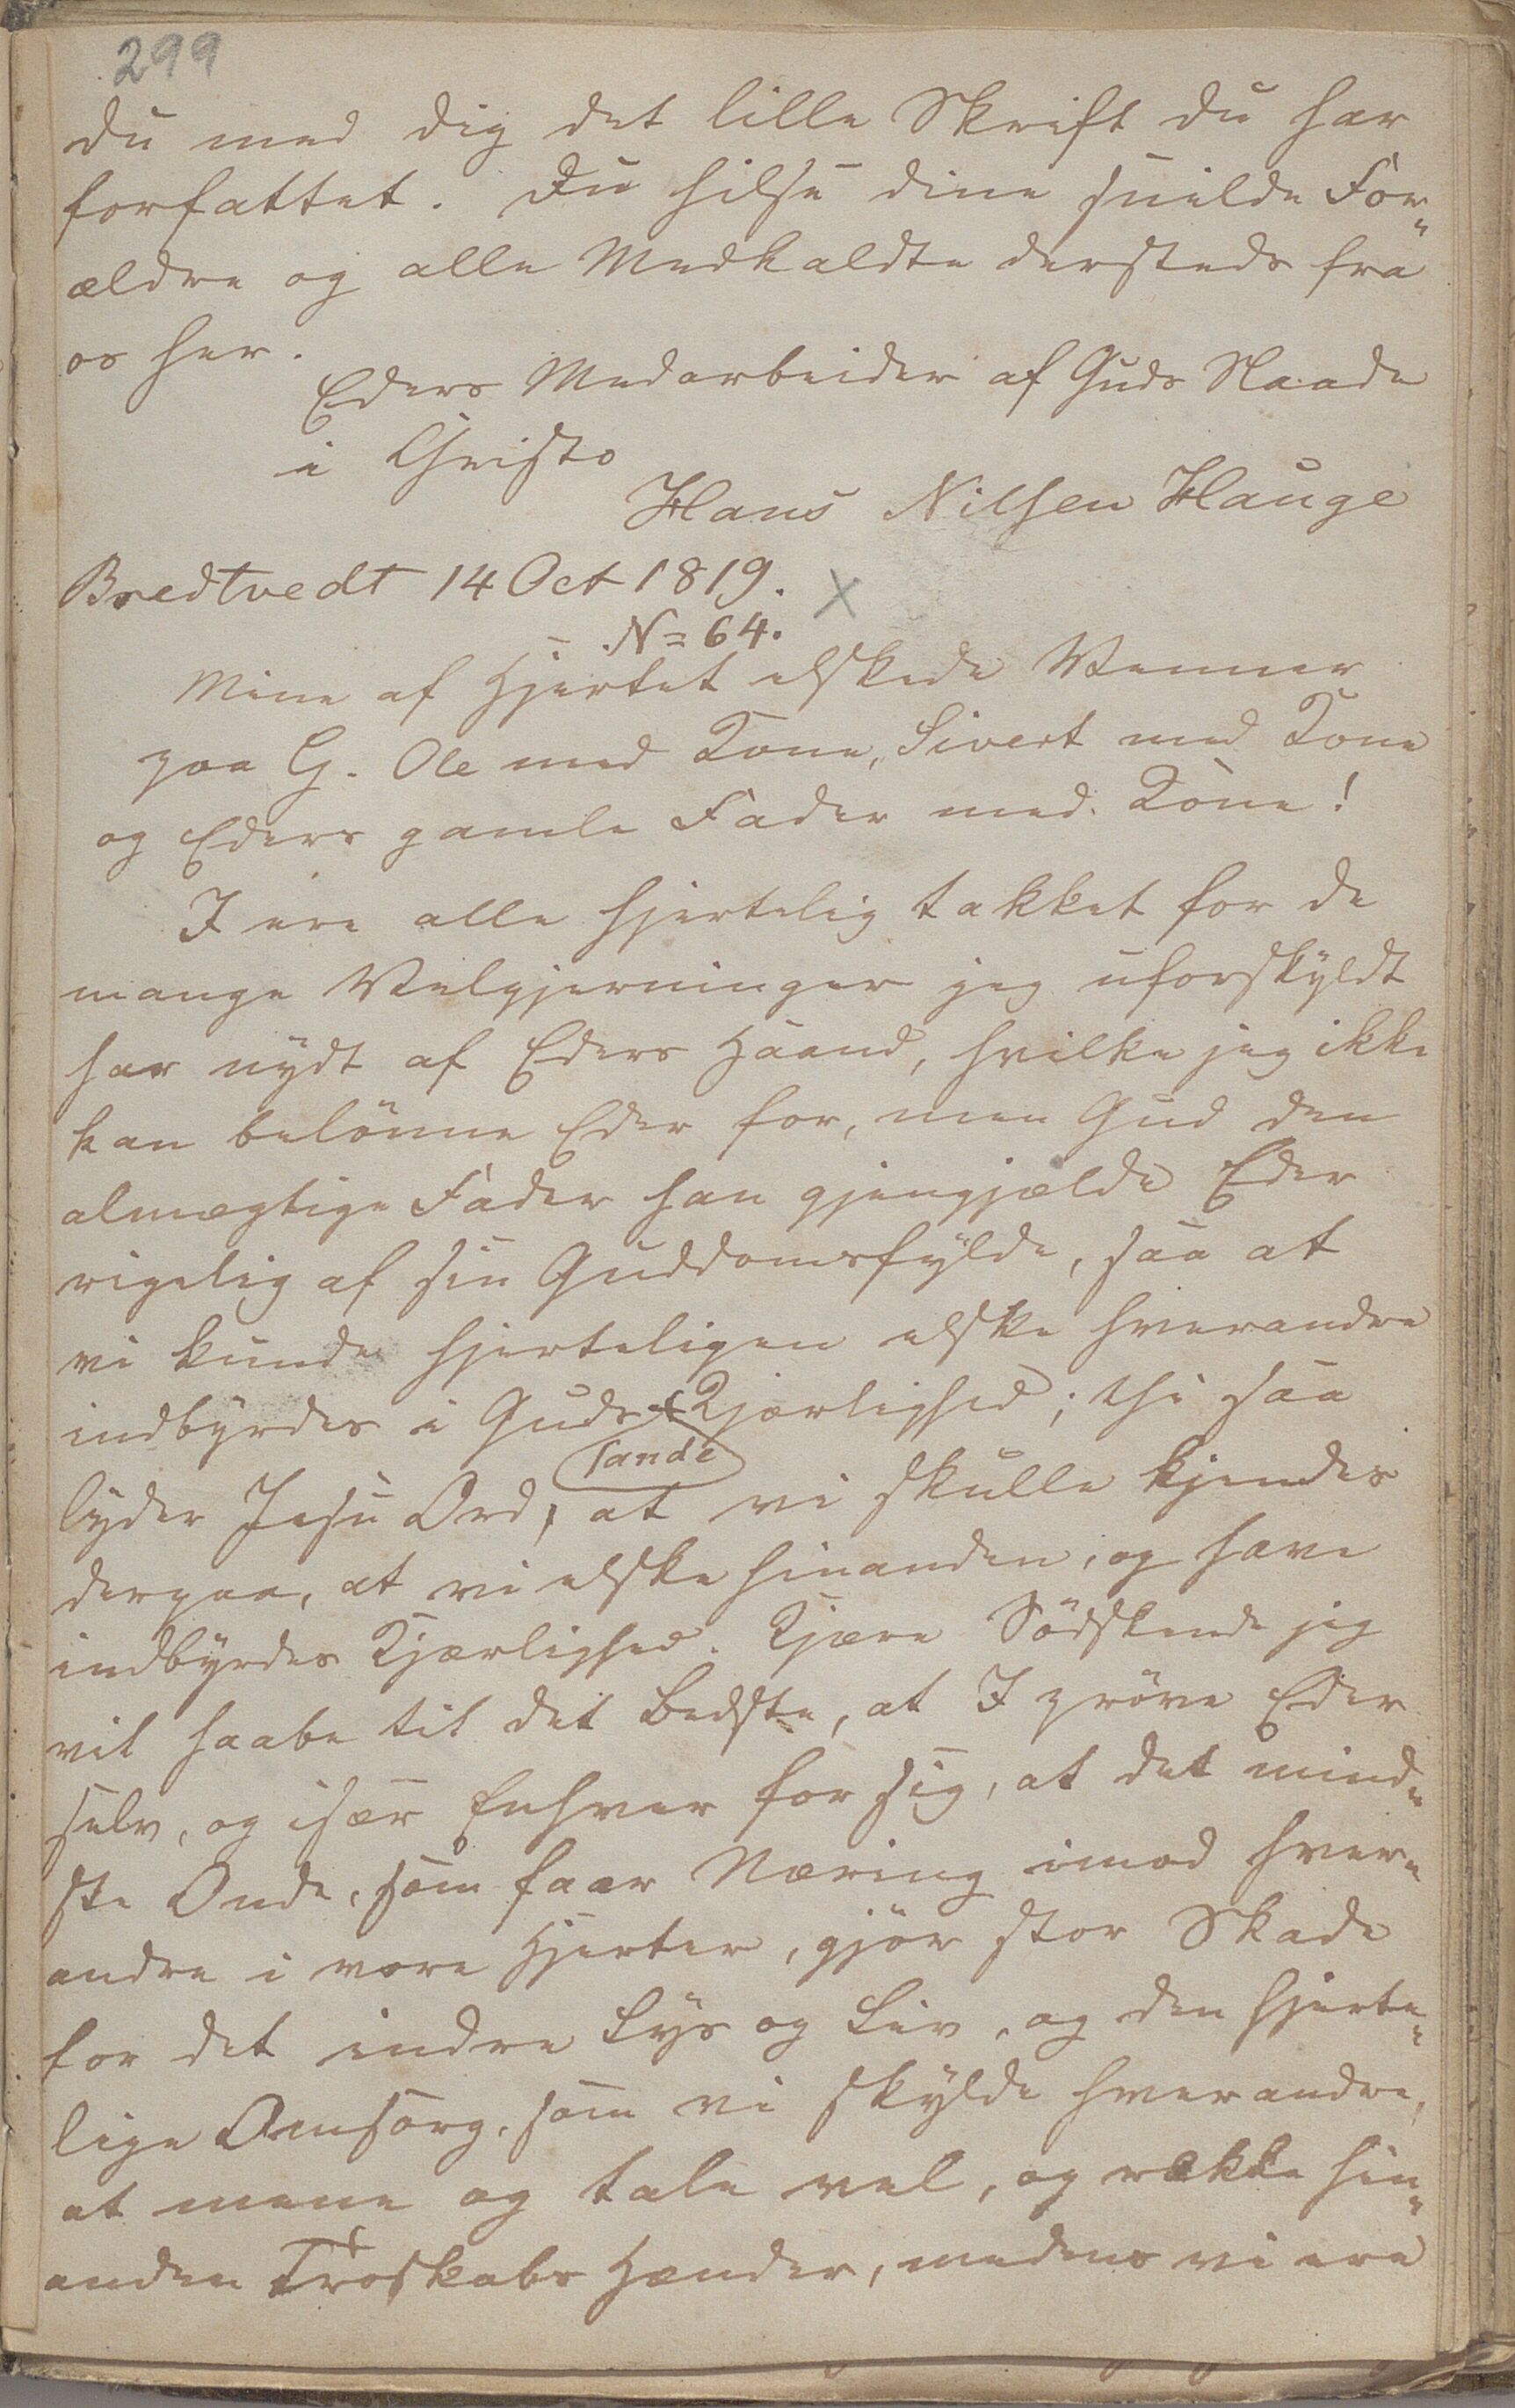 299
du med dig det lille Skrift du har
forfattet. Du hilse dine snilde For„
ældre og alle Medkaldte dersteds fra
os her.
Eders Medarbeider af Guds Naade
i Christo
Hans Nilsen Hauge
Bredtvedt 14 Oct 1819. X
N= 64.
Mine af Hjertet elskede Venner
paa G. Ole med Kone, Sivert med Kone
og Eders gamle Fader med Kone!
I ere alle hjertelig takket for de
mange Velgjerninger jeg uforskyldt
har nydt af Eders Haand, hvilke jeg ikke
kan belönne Eder for, men Gud den
almægtige Fader han gjengjælde Eder
rigelig af sin Guddomsfylde, saa at
vi kunde hjerteligen elske hverandre
indbyrdes i Guds Kjærlighed; thi saa
sande
lyder Jesu Ord, at vi skulle kjendes
derpaa, at vi elske hinanden, og have
indbyrdes Kjærlighed. Kjære Södskende jeg
vil haabe til det Bedste, at I pröve Eder
selv, og især Enhver for sig, at det mind„
ste Onde, som faar Næring imod hver„
andre i vore Hjerter, gjör stor Skade
for det indre Lys og Liv, og den hjerte„
lige Omsorg, som vi skylde hverandre,
at mene og tale vel, og række hin„
anden Troskabs Hænder, medens vi ere